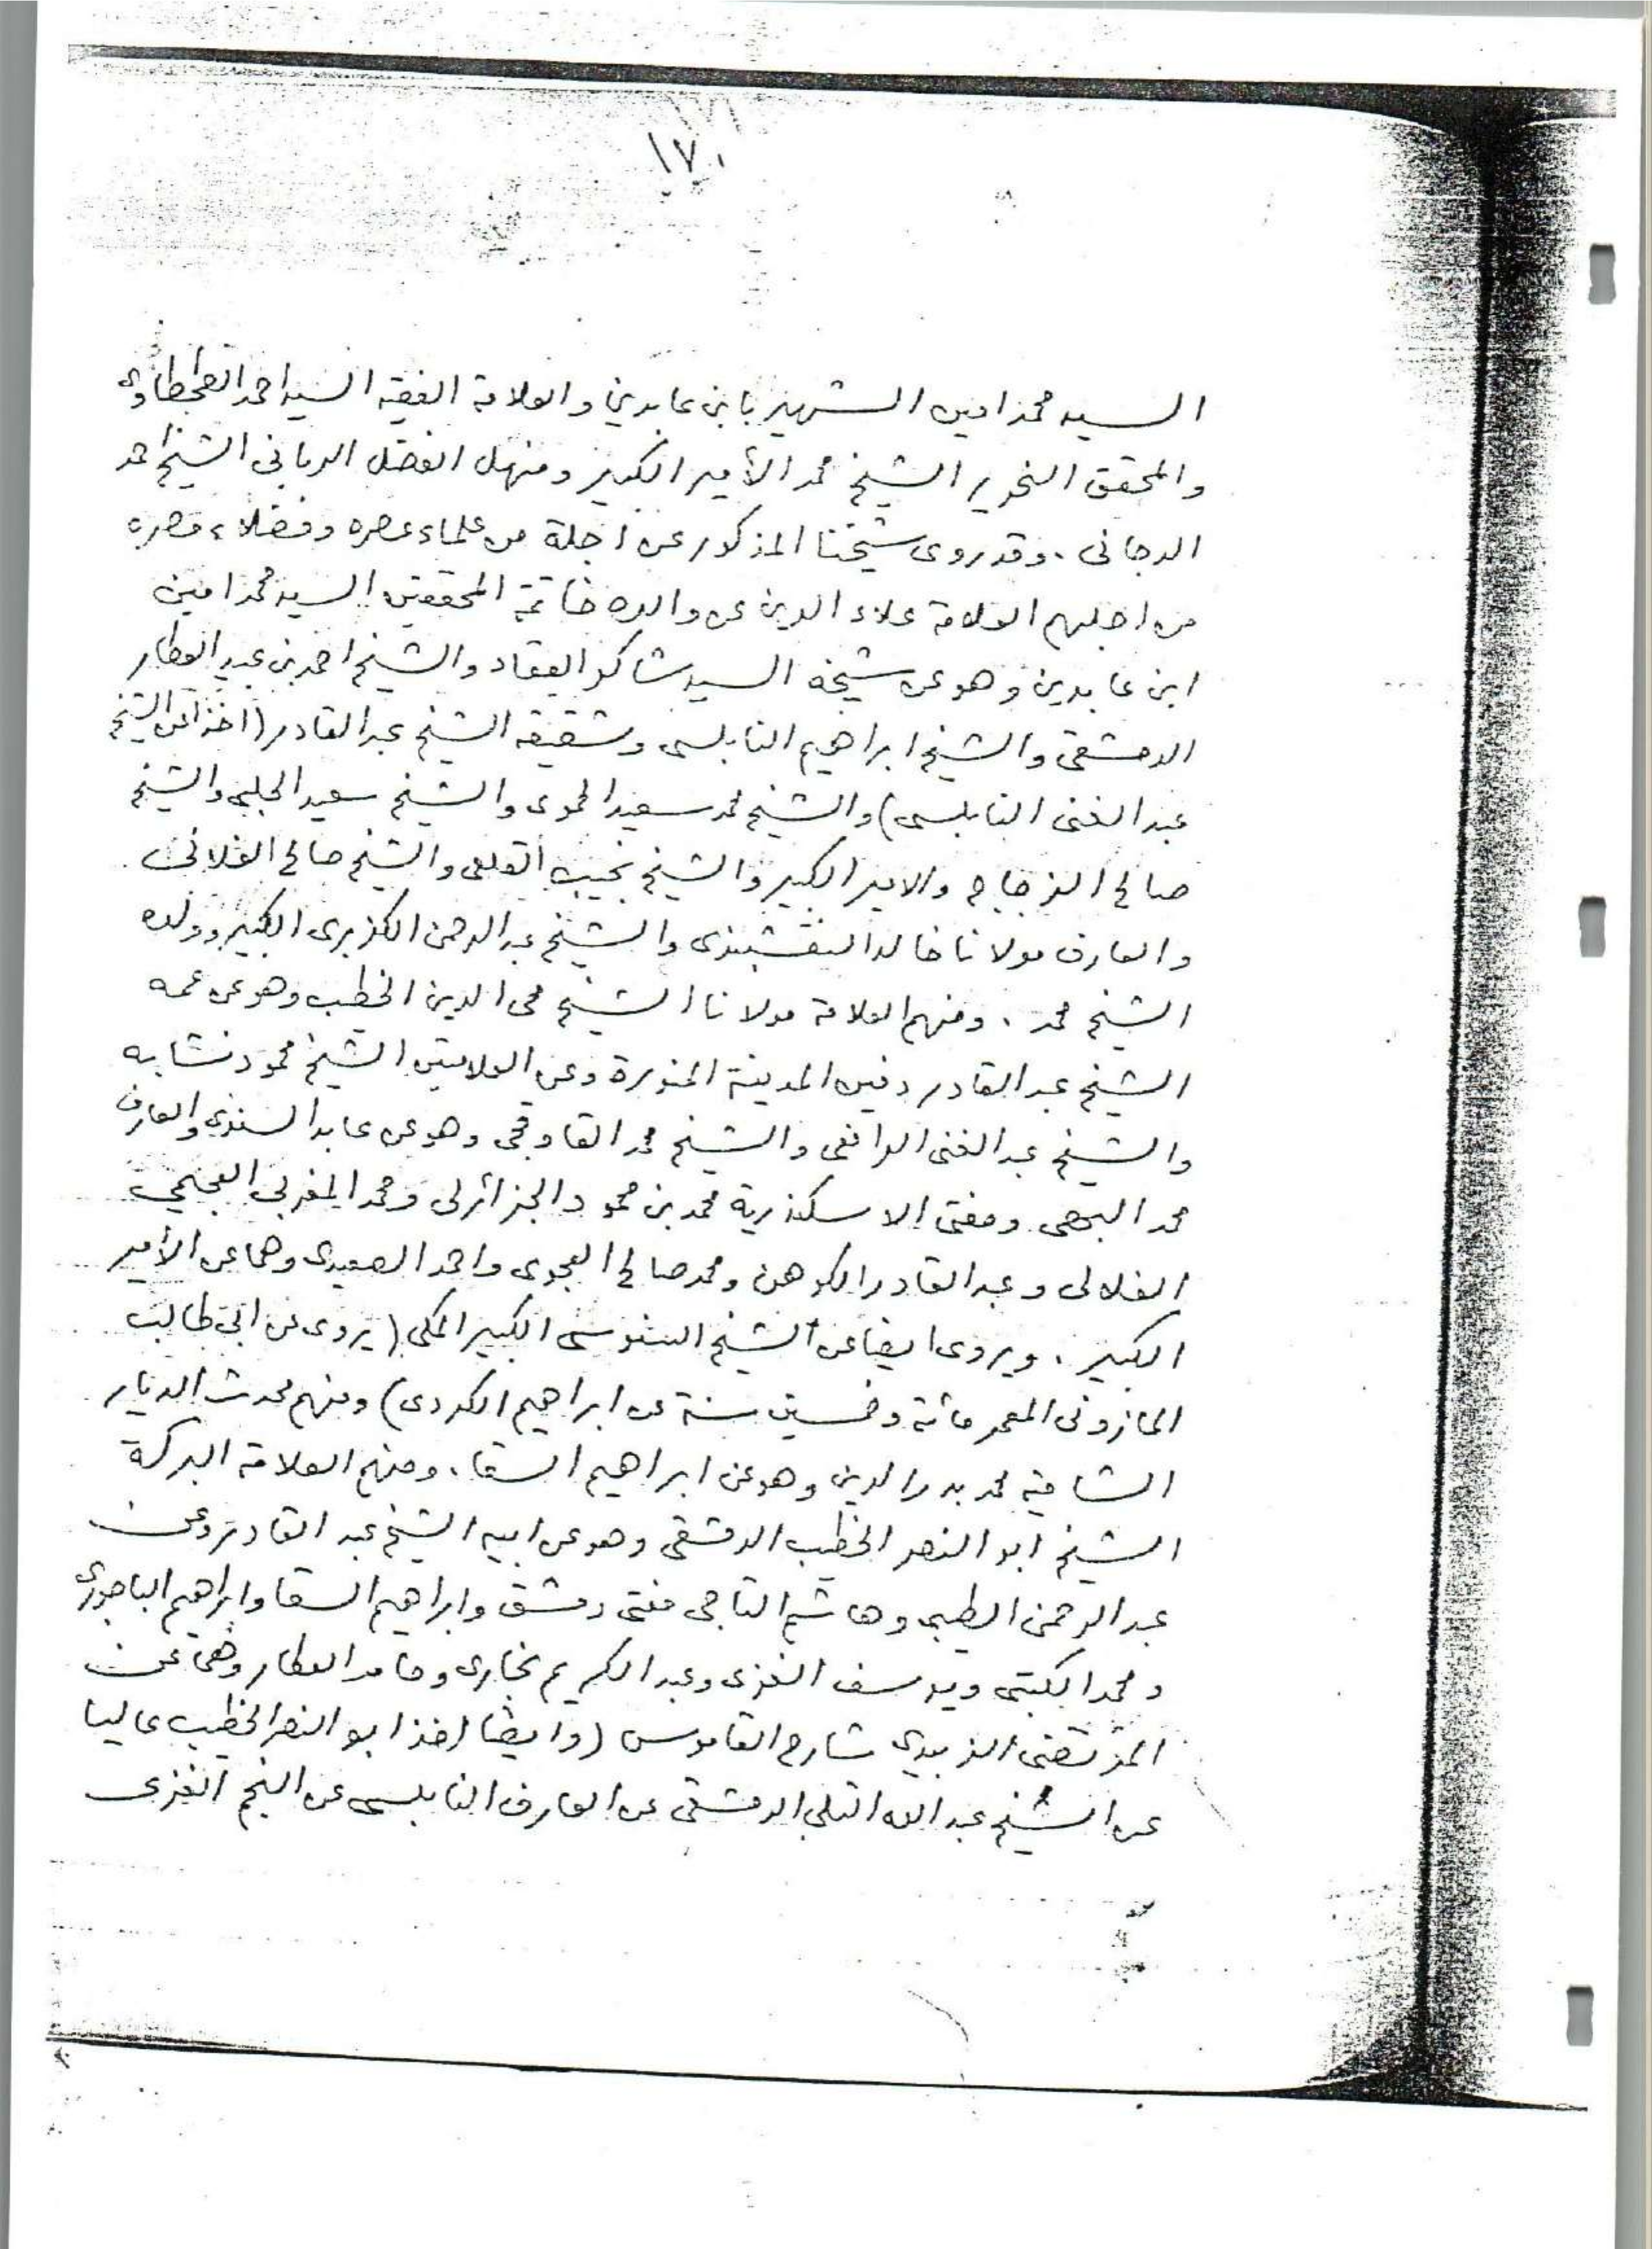 ١٧٠
السيد محمد امين الشهير بابن عابدين والعلامة الفقيه السيد احمد الطحطاوى
والمحقق النحرير الشيخ محمد الأمير الكبير ومنهل الفضل الربانى الشيخ احمد
الدجانى . وقد روى شيخنا المذكور عن اجلة من علماء عصره وفضلاء مصره
من اجلهم العلامة علاء الدين عن والده خاتمة المحققين السيد محمد امين
ابن عابدين وهو عن شيخه السيد شاكر العقاد والشيخ احمد بن عبيد العطار
الدمشقى والشيخ ابراهيم النابلسى وشقيقه الشيخ عبد القادر (اخذا عن الشيخ
عبد الغنى النابلسى) والشيخ محمد سعيد الحموى والشيخ سعيد الحلبى والشيخ
صالح الزجاج والامير الكبير والشيخ نجيب القلعى والشيخ صالح الفلانى
والعارف مولانا خالد النقشبندى والشيخ عبد الرحمن الكزبرى الكبير وولده
الشيخ محمد . ومنهم العلامة مولانا الشيخ محى الدين الخطيب وهو عن عمه
الشيخ عبد القادر دفين المدينة المنورة وعن العلامتين الشيخ محمود نشابه
والشيخ عبد الغنى الرافعى والشيخ محمد القاوقجى وهو عن عابد السندى والعارف
محمد البهى ومفتى الاسكندرية محمد بن محمود الجزائرلى ومحمد المغربى العجيمي
الفلالى وعبد القادر الكوهن ومحمد صالح العجوى واحمد الصعيدى وهما عن الأمير
الكبير . ويروى ايضا عن الشيخ السنوسى الكبير المكى (يروى عن ابى طالب
المازونى المعمر مائة وخمسين سنة عن ابراهيم الكردى) ومنهم محدث الديار
الشامية محمد بدر الدين وهو عن ابراهيم السقا . ومنهم العلامة البركة
الشيخ ابو النصر الخطيب الدمشقى وهو عن ابيه الشيخ عبد القادر وعن
عبد الرحمن الطيبى وهاشم التاجى مفتى دمشق وابراهيم السقا وابراهيم الباجورى
ومحمد الكتبى ويوسف الغزى وعبد الكريم بخارى وحامد العطار وهما عن
المرتضى الزبيدى شارح القاموس (وايضا اخذ ابو النصر الخطيب عاليا
عن الشيخ عبد الله التلى الدمشقى عن العارف النابلسى عن النجم الغزى